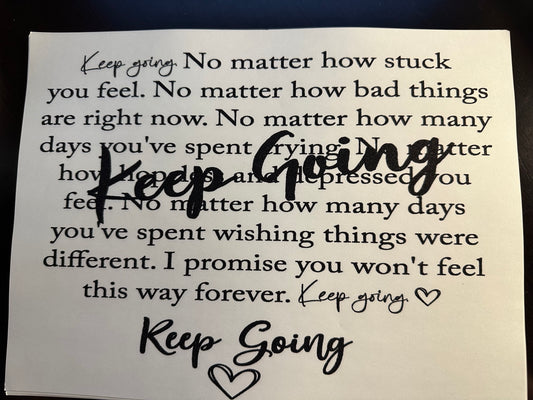 Keep going. No matter how stuck
you feel. No matter how bad things
are right now. No matter how many
days you've spent crying. No matter
how hopeless and depressed you
feel. No matter how many days
you've spent wishing things were
different. I promise you won't feel
this way forever. Keep going.
Keep Going
Keep Going